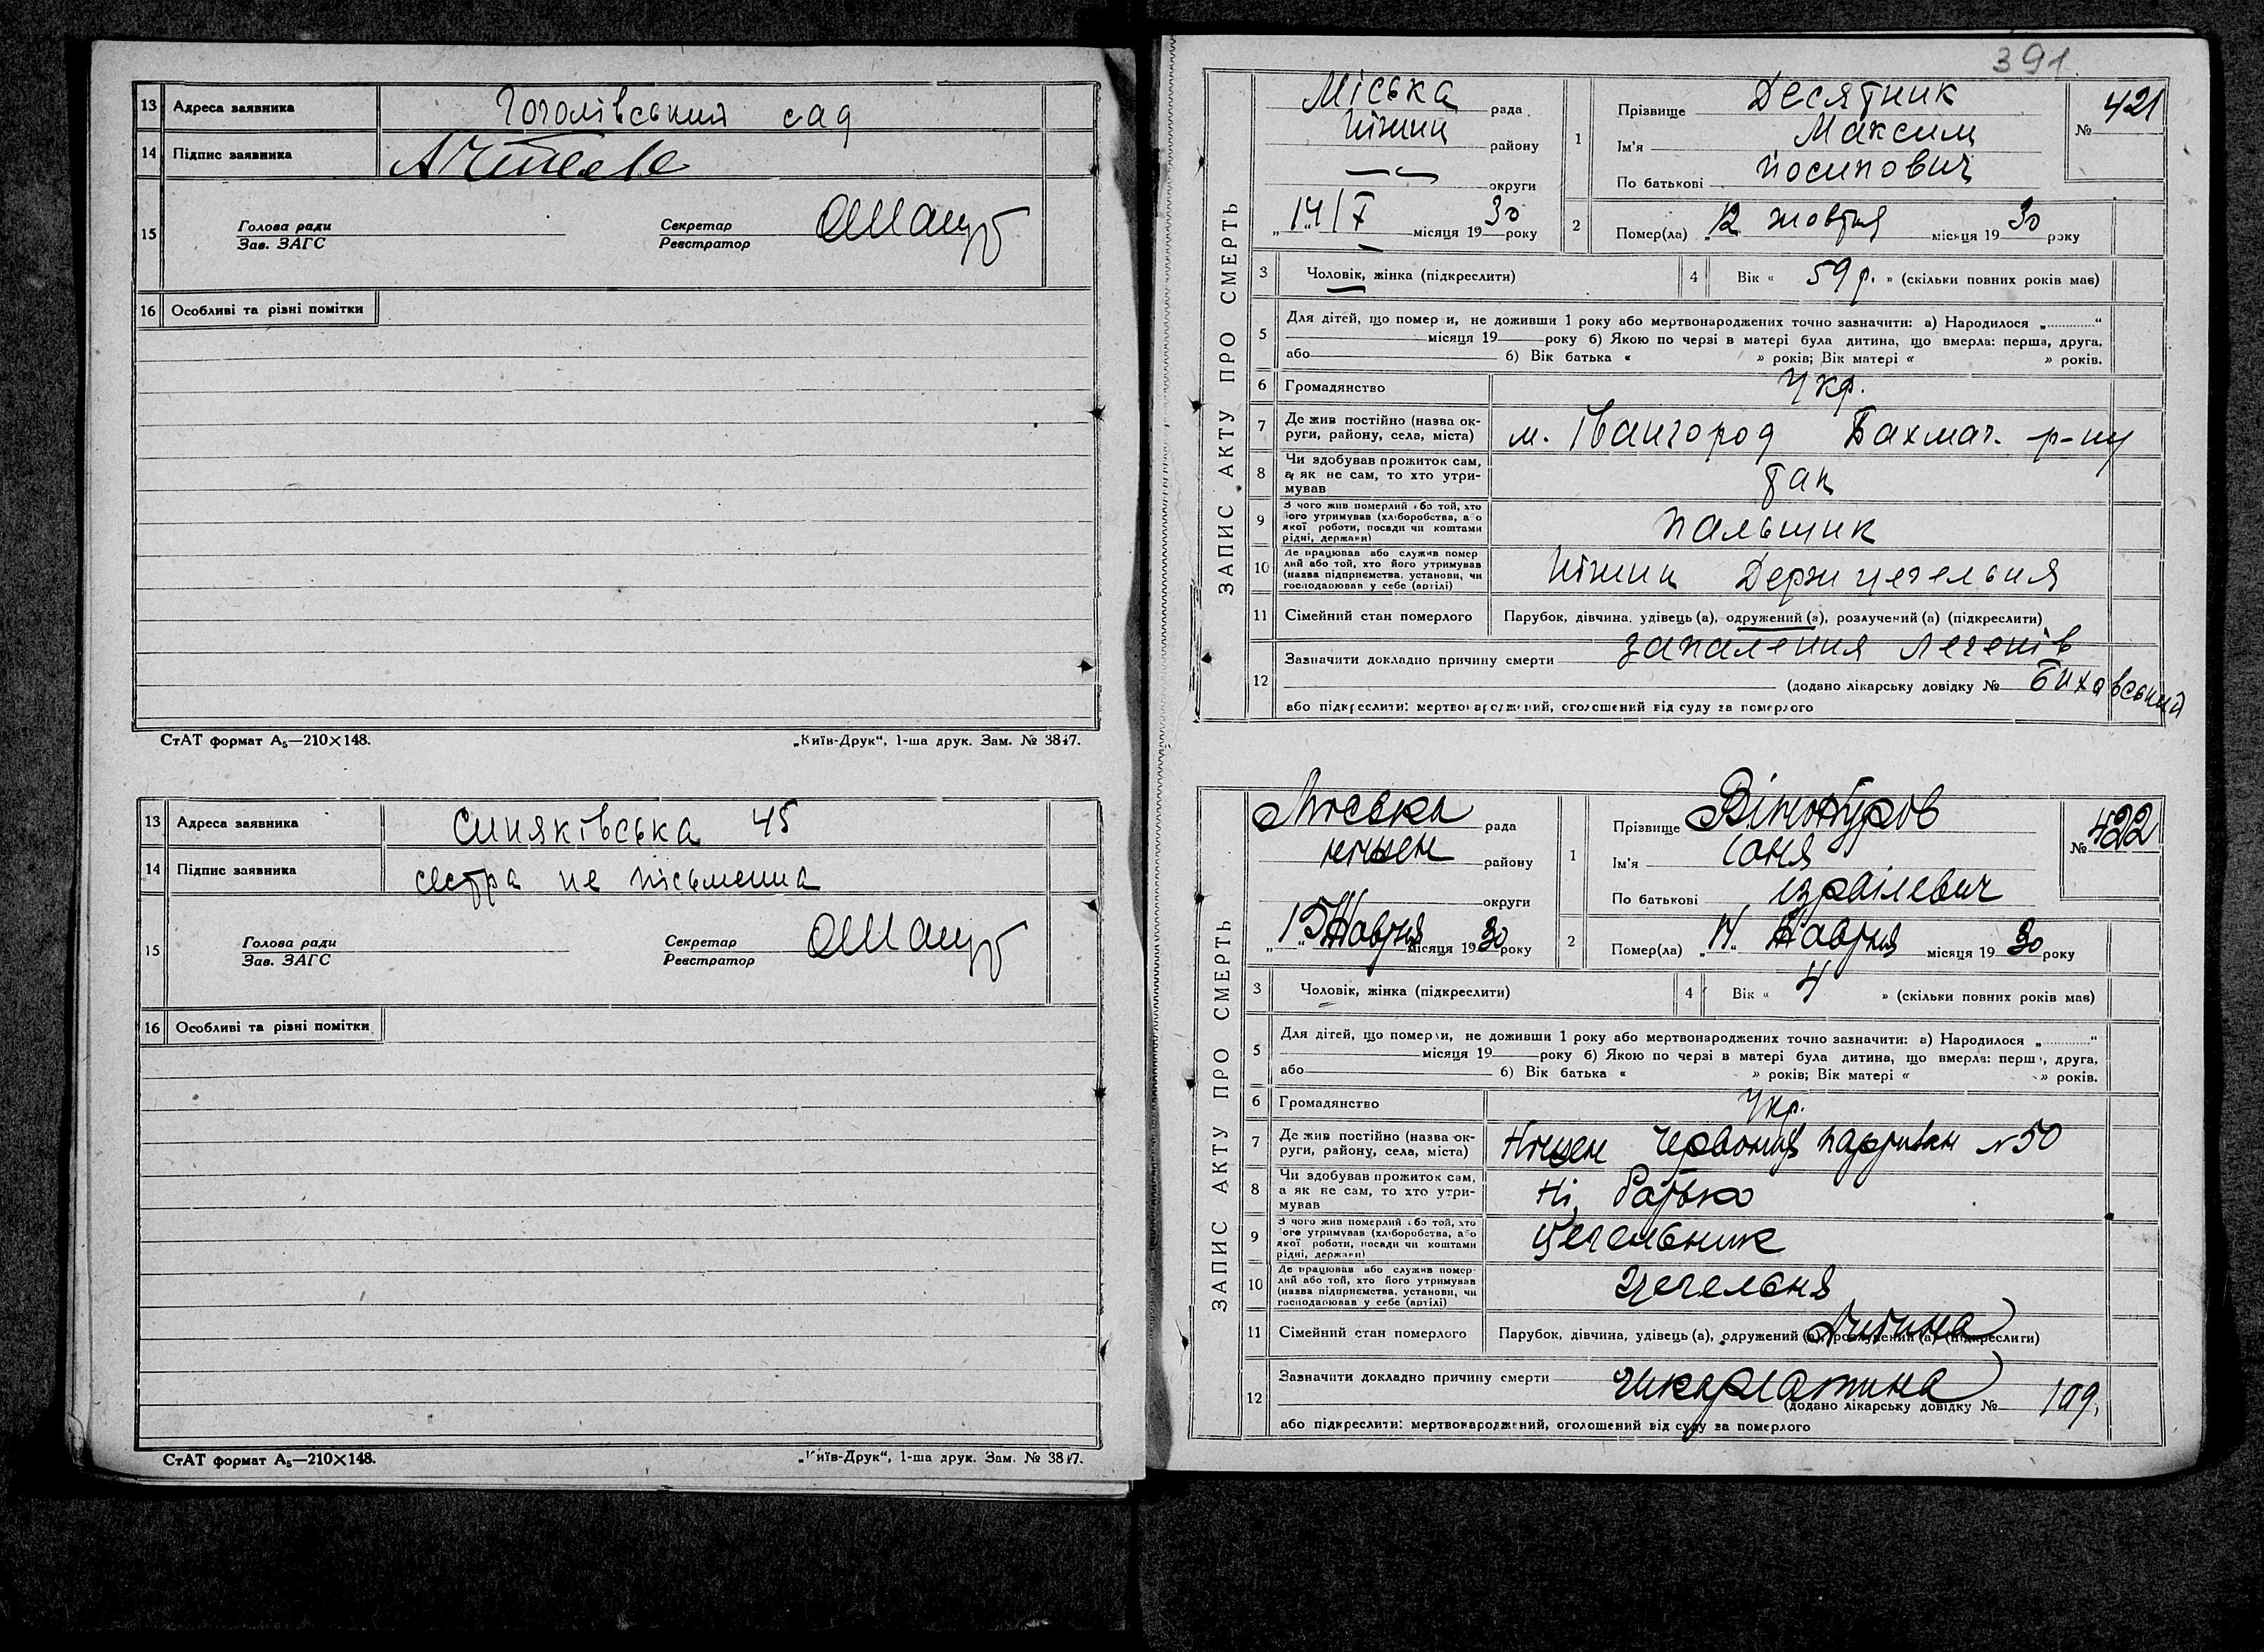 13 Адреса заявника Гоголівський сад
14 Підпис заявника
15 Голова ради Секретар
Зав. ЗАГС Реєстратор
16 Особливі та різні помітки
СтАТ формат А₅—210×148. „Київ-Друк“, 1-ша друк. Зам. № 3847.
13 Адреса заявника Синяківська 45
14 Підпис заявника сестра не письменна
15 Голова ради Секретар
Зав. ЗАГС Реєстратор
16 Особливі та різні помітки
СтАТ формат А₅—210×148. „Київ-Друк“, 1-ша друк. Зам. № 3847.
391
ЗАПИС АКТУ ПРО СМЕРТЬ
Міська рада
Ніжин району
округи
„14“ X місяця 1930 року
1 Прізвище Десятник
Ім'я Максим
По батькові Йосипович
№ 421
2 Помер(ла) „12 жовтня місяця 1930 року
3 Чоловік, жінка (підкреслити)
4 Вік « 59 р. » (скільки повних років має)
5 Для дітей, що померли, не доживши 1 року або мертвонароджених точно зазначити: а) Народилося „ “
місяця 19 року б) Якою по черзі в матері була дитина, що вмерла: перша, друга,
або б) Вік батька « » років; Вік матері « » років.
6 Громадянство Укр.
7 Де жив постійно (назва ок-
руги, району, села, міста) м. Івангород Бахмач. р-ну
8 Чи здобував прожиток сам,
а як не сам, то хто утри-
мував так
9 З чого жив померлий або той, хто
його утримував (хліборобства, або
якої роботи, посади чи коштами
рідні, держави) пальщик
10 Де працював або служив помер-
лий або той, хто його утримував
(назва підприємства, установи, чи
господарював у себе (артілі) Ніжин Держцегельня
11 Сімейний стан померлого Парубок, дівчина, удівець (а), одружений (а), розлучений (а) (підкреслити)
12 Зазначити докладно причину смерти запалення легенів
(додано лікарську довідку № Биховський
або підкреслити: мертвонароджений, оголошений від суду за померлого
ЗАПИС АКТУ ПРО СМЕРТЬ
Міська рада
Ніжен району
округи
„15“ Жовтня місяця 1930 року
1 Прізвище Вінокуров
Ім'я Іоня
По батькові Ізраілевич
№ 422
2 Помер(ла) „14“ Жовтня місяця 1930 року
3 Чоловік, жінка (підкреслити)
4 Вік « 4 » (скільки повних років має)
5 Для дітей, що померли, не доживши 1 року або мертвонароджених точно зазначити: а) Народилося „ “
місяця 19 року б) Якою по черзі в матері була дитина, що вмерла: перша, друга,
або б) Вік батька « » років; Вік матері « » років.
6 Громадянство Укр.
7 Де жив постійно (назва ок-
руги, району, села, міста) Ніжен Червоних партизан № 50
8 Чи здобував прожиток сам,
а як не сам, то хто утри-
мував Ні, батько
9 З чого жив померлий або той, хто
його утримував (хліборобства, або
якої роботи, посади чи коштами
рідні, держави) Цегельник
10 Де працював або служив помер-
лий або той, хто його утримував
(назва підприємства, установи, чи
господарював у себе (артілі) Цегельня
11 Сімейний стан померлого Парубок, дівчина, удівець (а), одружений (а), розлучений (а) (підкреслити) Дитина
12 Зазначити докладно причину смерти шкарлатина
(додано лікарську довідку № 109.
або підкреслити: мертвонароджений, оголошений від суду за померлого